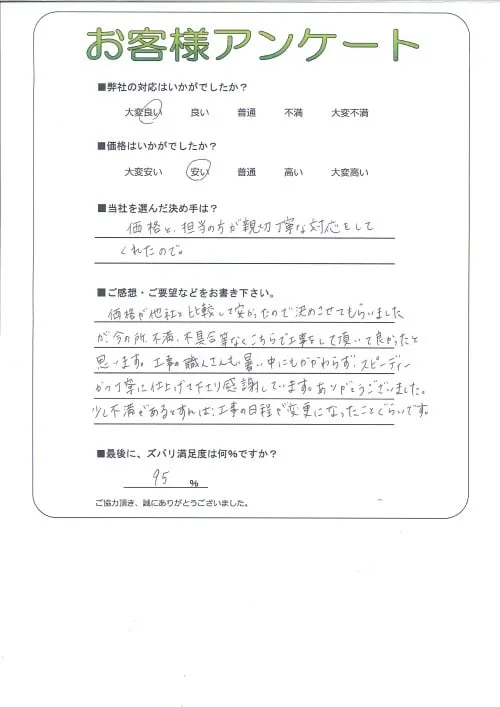 お客様アンケート
■弊社の対応はいかがでしたか？
大変良い 良い 普通 不満 大変不満
■価格はいかがでしたか？
大変安い 安い 普通 高い 大変高い
■当社を選んだ決め手は？
価格と、担当の方が親切丁寧な対応をして
くれたので。
■ご感想・ご要望などをお書き下さい。
価格が他社と比較して安かったので決めさせてもらいました
が、今の所、不満、不具合等なくこちらで工事をして頂いて良かったと
思います。工事の職人さんも暑い中にもかかわらず、スピーディー
かつ丁寧に仕上げて下さり感謝しています。ありがとうございました。
少し不満があるとすれば、工事の日程が変更になったことぐらいです。
■最後に、ズバリ満足度は何%ですか？
95 %
ご協力頂き、誠にありがとうございました。